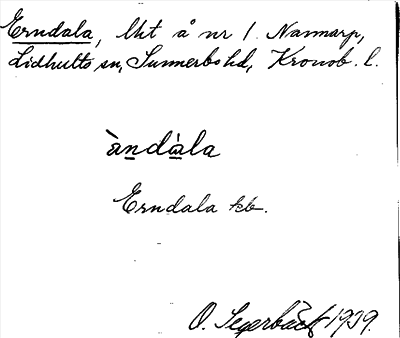 Erndala, lht å nr 1 Nannarp,
Lidhults sn, Sunnerbo hd, Kronob. l.
àndàla
Erndala kb.
O. Segerbäck 1939.